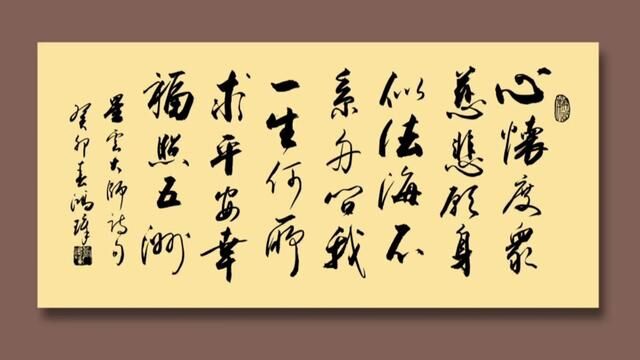 心懷度眾
慈悲願身
似法海不
系舟問我
一生何所
求平安幸
福照五洲
星云大師詩句
癸卯春鴻璋